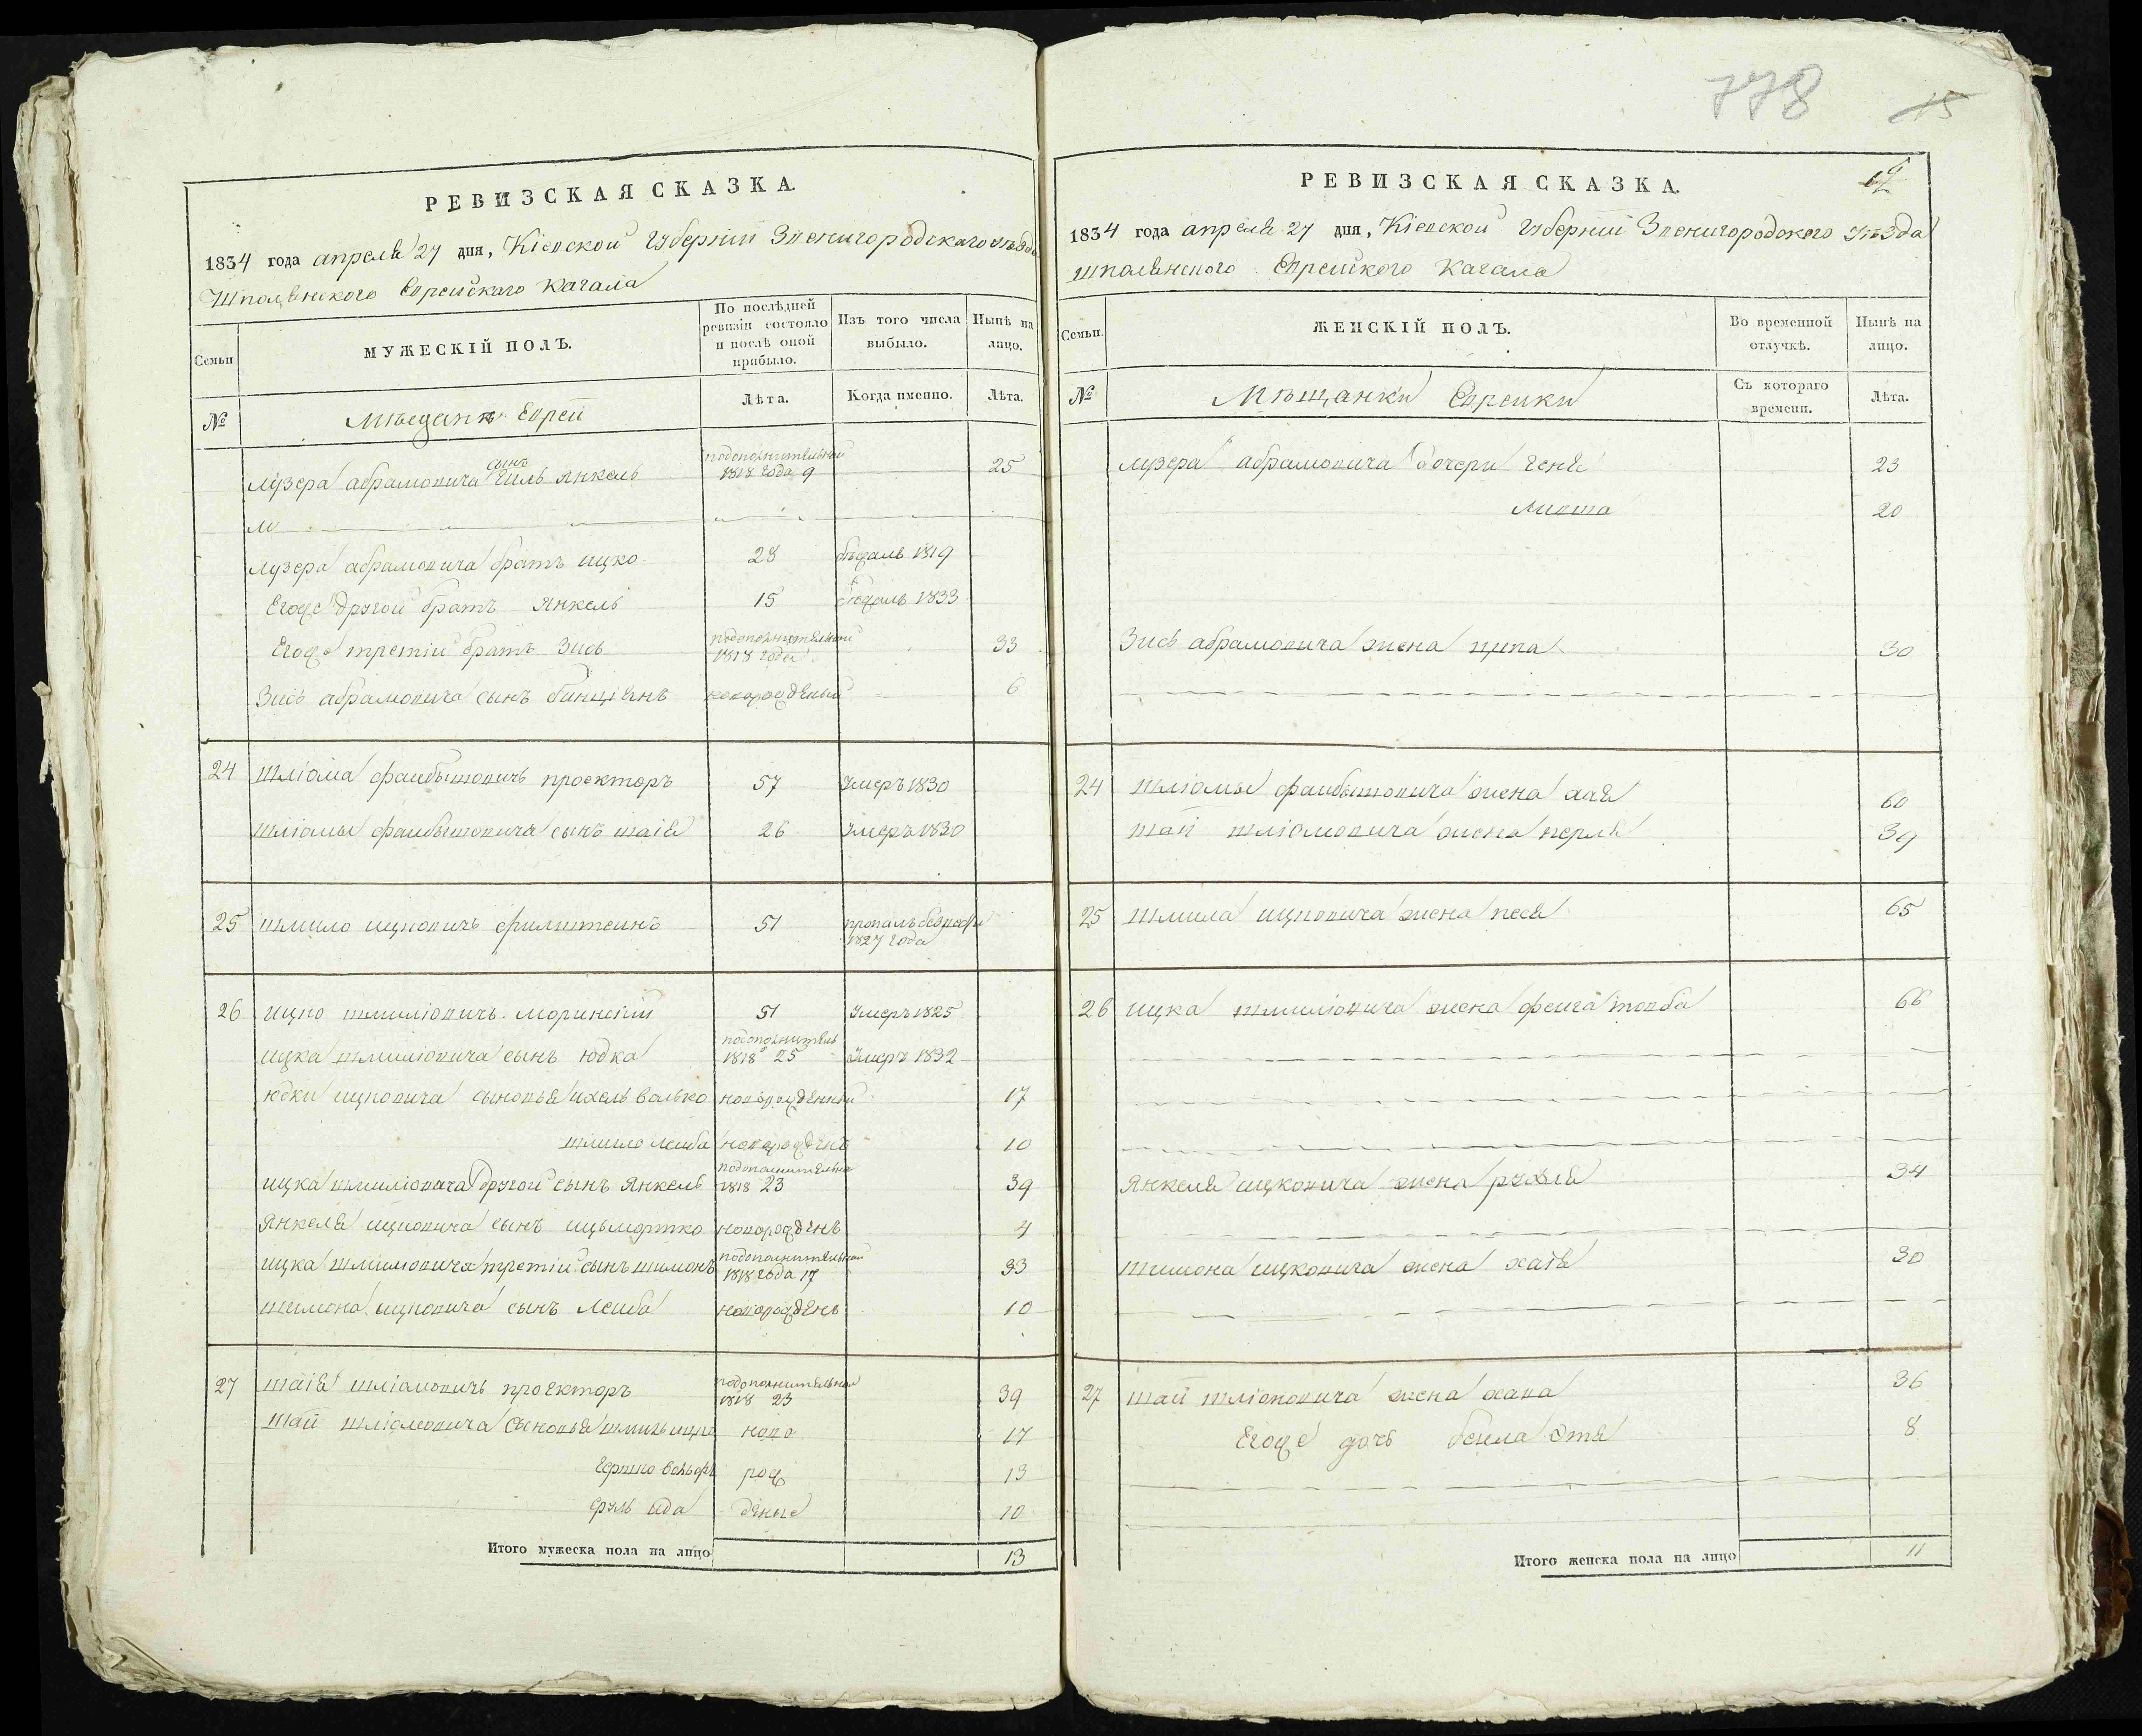 778 15
РЕВИЗСКАЯ СКАЗКА.
1834 года апреля 27 дня, Кіевской губерніи Звенигородского уѣзда
Шполянского Еврейскаго Кагала
Семьи
МУЖЕСКІЙ ПОЛЪ.
По послѣдней ревизіи состояло и послѣ оной прибыло.
Изъ того числа выбыло.
Нынѣ на лицо.
№
Еврей
Лѣта.
Когда именно.
Лѣта.
Лузера абрамовича сынъ Гиль Янкель подополнительной 1818 года 9 25
Лузера абрамовича братъ ицко 28 бѣжалъ 1819
Егоже другой братъ Янкель 15 бѣжалъ 1833
Егоже третій братъ Зись подополнительной 1818 года 33
Зись абрамовича сынъ бинціенъ новорожденый 6
24 Шліома фаибышовичь проекторъ 57 умеръ 1830
шліомы фаибышовича сынъ шаія 26 умеръ 1830
25 шмило ицковичь филштеинъ 51 пропалъ 1827 года
26 ицко шмиліовичь Моринскій 51 умеръ 1825
ицка шмиліовича сынъ юдка подополнитель 1818 25 умеръ 1832
юдки ицковича сыновья ихель волько новорожденный 17
шмило леиба новорожденъ 10
ицка шмиліовича другой сынъ Янкель подополнительно 1818 23 39
Янкеля ицковича сынъ ицьмортко новорожденъ 4
ицка шмиліовича третій сынъ шимонъ подополнительной 1818 года 17 33
шимона ицковича сынъ Леиба новорожденъ 10
27 шаія шліомовичь проекторъ подополнительной 1818 23 39
шаіи шліомовича сыновья ново 17
Гершко Вольфъ рож 13
сруль ида деные 10
Итого мужеска пола на лицо 13
РЕВИЗСКАЯ СКАЗКА.
1834 года апреля 27 дня, Кіевской губерніи Звенигородского уѣзда
шполянского Еврейского Кагала
Семьи.
ЖЕНСКІЙ ПОЛЪ.
Во временной отлучкѣ.
Нынѣ на лицо.
№
Мѣщанки Евреики
Съ котораго времени.
Лѣта.
Лузера абрамовича дочери геня 23
Ливша 20
Зись абрамовича жена ципа 30
24 шліомы фаибышовича жена хая 60
шаіи шліомовича жена перля 39
25 шмила ицковича жена песя 65
26 ицка шмиліовича жена феига товба 66
Янкеля ицковича жена рухля 34
шимона ицковича жена хаія 30
27 шаіи шліомовича жена хана 36
Егоже дочь беила Этя 8
Итого женска пола на лицо 11